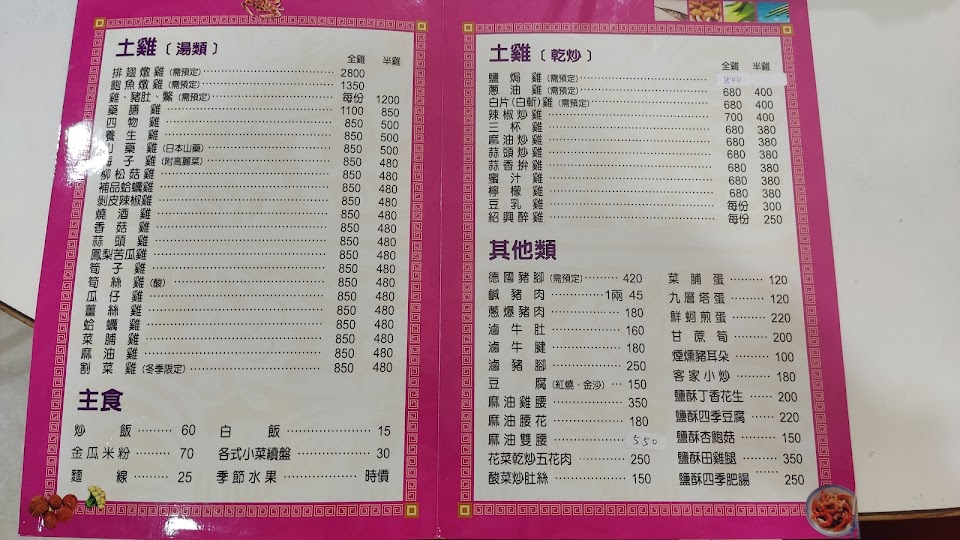 土雞〔湯類〕
全雞 半雞
排翅燉雞(需預定) 2800
鮑魚燉雞(需預定) 1350
雞、豬肚、鱉(需預定) 每份 1200
藥膳雞 1100 850
四物雞 850 500
養生雞 850 500
山藥雞(日本山藥) 850 500
子雞(附高麗菜) 850 480
柳松菇雞 850 480
補品蛤蠣雞 850 480
剝皮辣椒雞 850 480
燒酒雞 850 480
香菇雞 850 480
蒜頭雞 850 480
鳳梨苦瓜雞 850 480
筍子雞 850 480
筍絲雞(酸) 850 480
瓜仔雞 850 480
薑絲雞 850 480
蛤蠣雞 850 480
菜脯雞 850 480
麻油雞 850 480
割菜雞(冬季限定) 850 480
主食
炒飯 60 白飯 15
金瓜米粉 70 各式小菜續盤 30
麵線 25 季節水果 時價
土雞〔乾炒〕
全雞 半雞
鹽焗雞(需預定) 800
蔥油雞(需預定) 680 400
白片(白斬)雞(需預定) 680 400
辣椒炒雞 700 400
三杯雞 680 380
麻油炒雞 680 380
蒜頭炒雞 680 380
蒜香拚雞 680 380
蜜汁雞 680 380
檸檬雞 680 380
豆乳雞 每份 300
紹興醉雞 每份 250
其他類
德國豬腳(需預定) 420
鹹豬肉 1兩 45
蔥爆豬肉 180
滷牛肚 160
滷牛腱 180
滷豬腳 250
豆腐(紅燒、金沙) 150
麻油雞腰 350
麻油腰花 180
麻油雙腰 550
花菜乾炒五花肉 250
酸菜炒肚絲 150
菜脯蛋 120
九層塔蛋 120
鮮蚵煎蛋 220
甘蔗筍 200
煙燻豬耳朵 100
客家小炒 180
鹽酥丁香花生 200
鹽酥四季豆腐 220
鹽酥杏鮑菇 150
鹽酥田雞腿 350
鹽酥四季肥腸 250